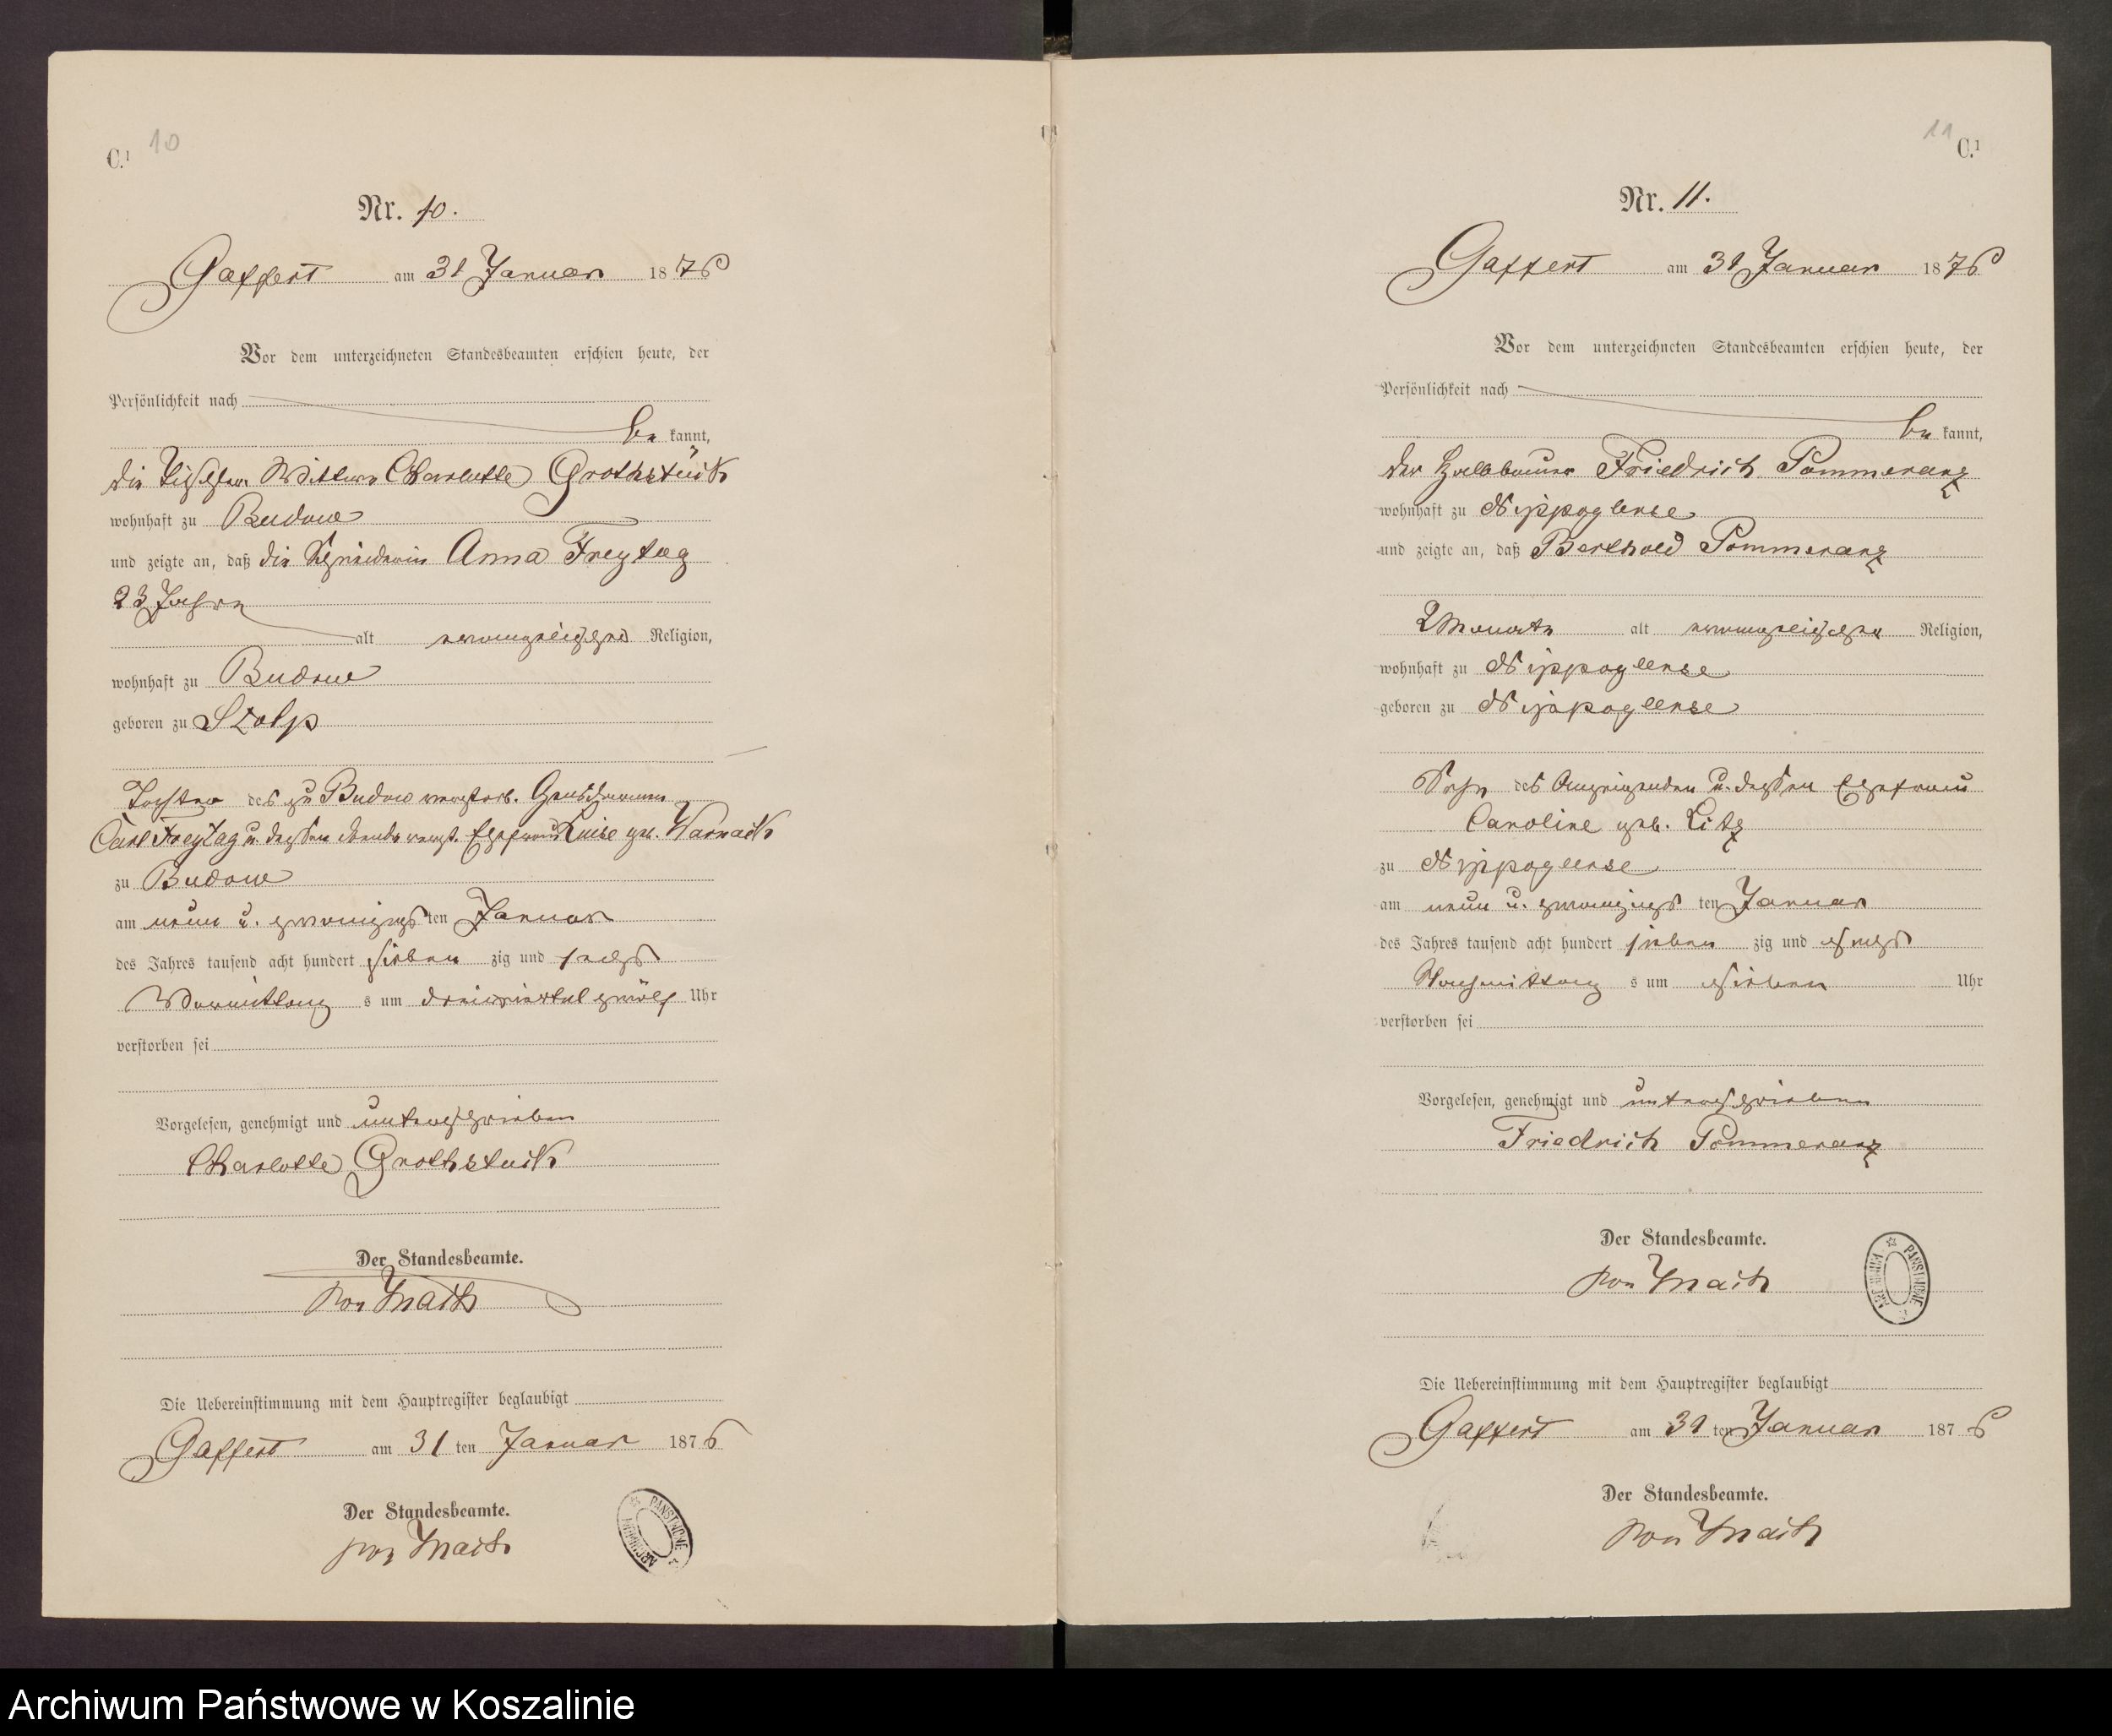 C.¹ 10
Nr. 10.
Gaffert am 31 Januar 1876
Vor dem unterzeichneten Standesbeamten erschien heute, der
Persönlichkeit nach
be kannt,
die Tischler Wittwe Charlotte Grothstück
wohnhaft zu Budow
und zeigte an, daß die Schneiderin Anna Freytag
23 Jahre
alt evangelischer Religion,
wohnhaft zu Budow
geboren zu Stolp
Tochter des zu Budow verstorb.
Carl Freytag u. dessen verst. Ehefrau Luise geb. Warnack
zu Budow
am neun u. zwanzigsten Januar
des Jahres tausend acht hundert sieben zig und sechs
Vormittags um dreiviertel zwölf Uhr
verstorben sei
Vorgelesen, genehmigt und unterschrieben
Charlotte Grothstück
Der Standesbeamte.
von
Die Uebereinstimmung mit dem Hauptregister beglaubigt
Gaffert am 31 ten Januar 1876
Der Standesbeamte.
von
ARCHIWUM PAŃSTWOWE
11 C.¹
Nr. 11.
Gaffert am 31 Januar 1876
Vor dem unterzeichneten Standesbeamten erschien heute, der
Persönlichkeit nach
be kannt,
der Halbbauer Friedrich Pommeranz
wohnhaft zu Nippoglense
und zeigte an, daß Berthold Pommeranz
2 Monate alt evangelischer Religion,
wohnhaft zu Nippoglense
geboren zu Nippoglense
Sohn des Anzeigenden u. dessen Ehefrau
Caroline geb. Litz
zu Nippoglense
am neun u. zwanzigsten Januar
des Jahres tausend acht hundert sieben zig und sechs
Nachmittags um sieben Uhr
verstorben sei
Vorgelesen, genehmigt und unterschrieben
Friedrich Pommeranz
Der Standesbeamte.
von
ARCHIWUM PAŃSTWOWE
Die Uebereinstimmung mit dem Hauptregister beglaubigt
Gaffert am 31 ten Januar 1876
Der Standesbeamte.
von
Archiwum Państwowe w Koszalinie